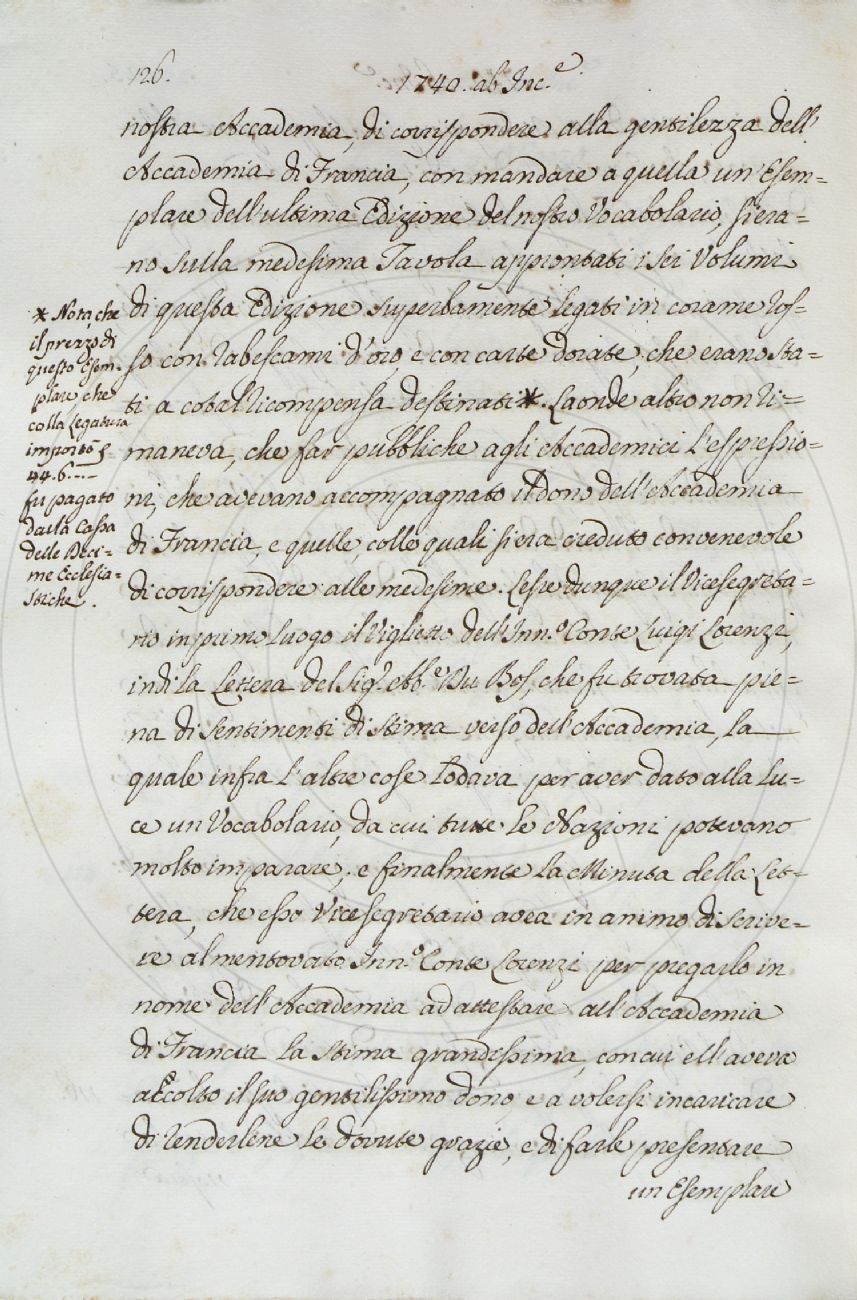 126.
1740. ab Inc.e
nostra Accademia, di corrispondere alla gentilezza dell'
Accademia di Francia, con mandare a quella un'Esem=
plare dell'ultima Edizione del nostro Vocabolario, s'era=
no sulla medesima Tavola approntati i sei Volumi
di questa Edizione superbamente legati in corame ros=
so con rabescami d'oro, e con carte dorate, che erano sta=
ti a cotal ricompensa destinati *. Laonde altro non ri=
maneva, che far pubbliche agli Accademici l'espressio=
ni, che avevano accompagnato il dono dell'Accademia
di Francia, e quelle, colle quali s'era creduto convenevole
di corrispondere alle medesime. Lesse dunque il Vicesegreta=
rio in primo luogo il Viglietto dell'Inn.o Conte Luigi Lorenzi,
indi la Lettera del Sig.r Abb.e Du Bos, che fu trovata pie=
na di sentimenti di stima verso dell'Accademia, la
quale infra l'altre cose lodava per aver dato alla lu=
ce un Vocabolario, da cui tutte le Nazioni potevano
molto imparare; e finalmente la Minuta della Let=
tera, che esso Vicesegretario avea in animo di scrive=
re al mentovato Inn.o Conte Lorenzi per pregarlo in
nome dell'Accademia ad attestare all'Accademia
di Francia la stima grandissima, con cui ell'aveva
accolto il suo gentilissimo dono, e a volersi incaricare
di renderlene le dovute grazie, e di farle presentare
un Esemplare
* Nota, che
il prezzo di
questo Esem=
plare, che
colla legatura
importò
44.6.--
fu pagato
dalla Cassa
delle Deci=
me Ecclesia=
stiche.